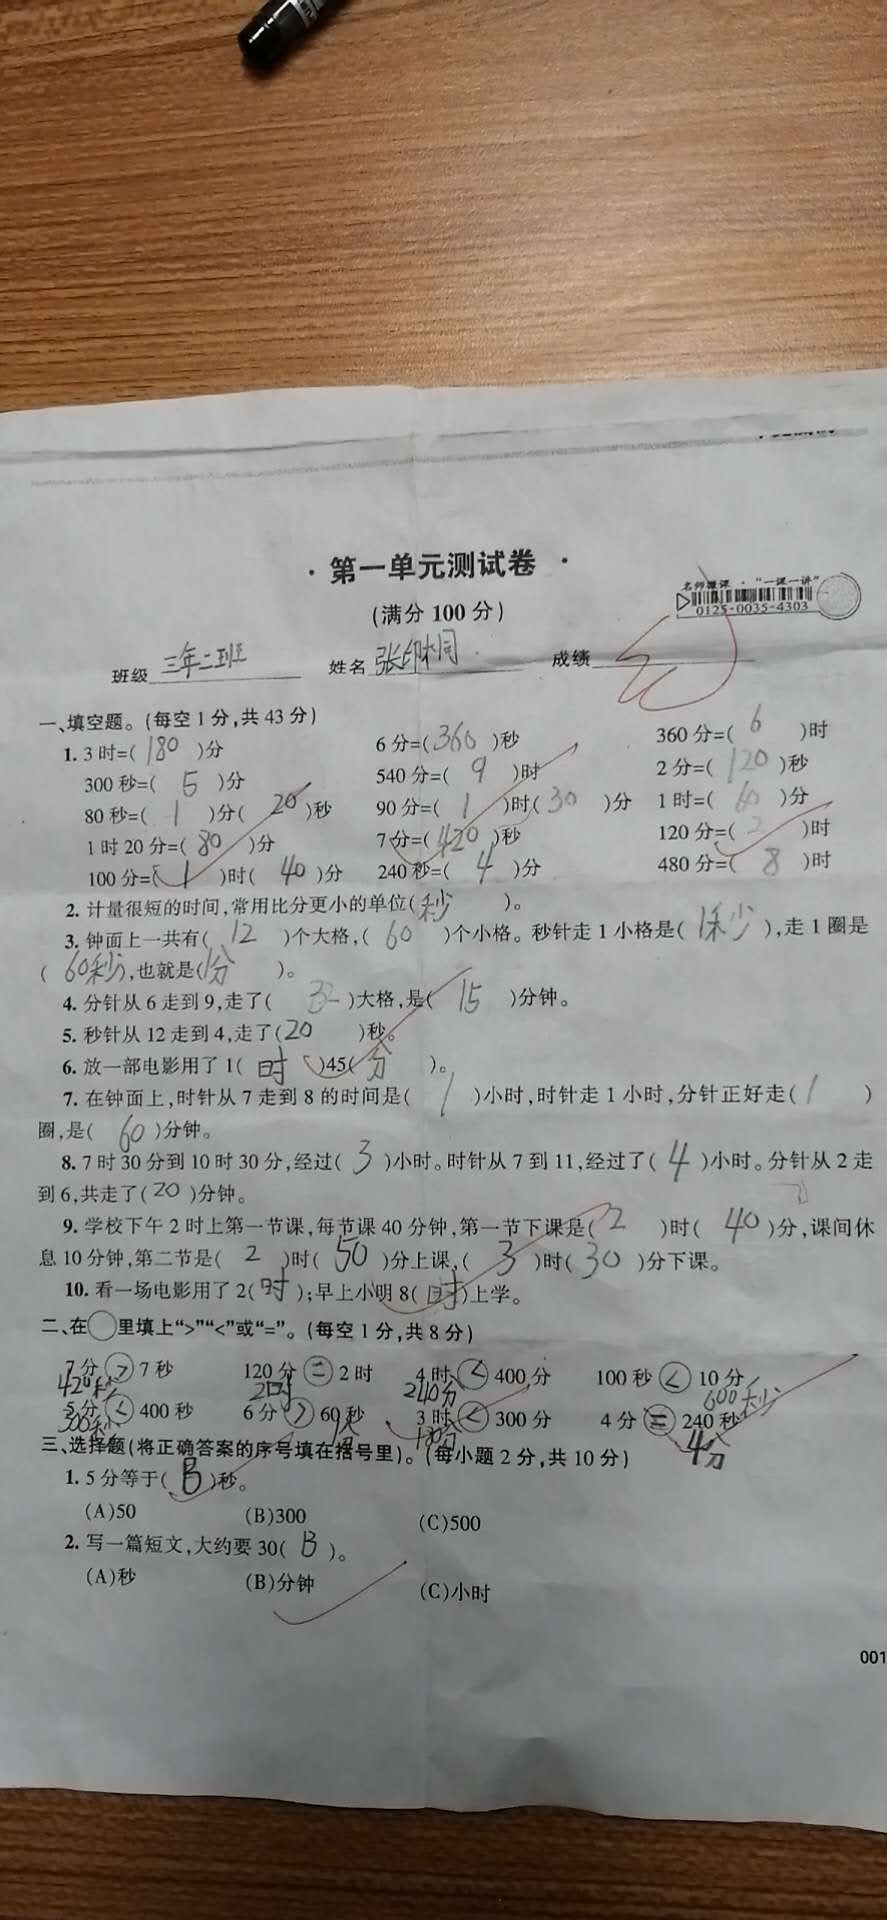 ·第一单元测试卷·
名师微课·“一课一讲”
0125-0035-4303
(满分100分)
班级 三年二班 姓名 张印桐 成绩
一、填空题。(每空1分,共43分)
1. 3时=( 180 )分 6分=( 360 )秒 360分=( 6 )时
300秒=( 5 )分 540分=( 9 )时 2分=( 120 )秒
80秒=( 1 )分( 20 )秒 90分=( 1 )时( 30 )分 1时=( 60 )分
1时20分=( 80 )分 7分=( 420 )秒 120分=( 2 )时
100分=( 1 )时( 40 )分 240秒=( 4 )分 480分=( 8 )时
2. 计量很短的时间,常用比分更小的单位( 秒 )。
3. 钟面上一共有( 12 )个大格,( 60 )个小格。秒针走1小格是( 1秒 ),走1圈是
( 60秒 ),也就是( 1分 )。
4. 分针从6走到9,走了( 3 )大格,是( 15 )分钟。
5. 秒针从12走到4,走了( 20 )秒。
6. 放一部电影用了1( 时 )45( 分 )。
7. 在钟面上,时针从7走到8的时间是( 1 )小时,时针走1小时,分针正好走( 1 )
圈,是( 60 )分钟。
8. 7时30分到10时30分,经过( 3 )小时。时针从7到11,经过了( 4 )小时。分针从2走
到6,共走了( 20 )分钟。
9. 学校下午2时上第一节课,每节课40分钟,第一节下课是( 2 )时( 40 )分,课间休
息10分钟,第二节是( 2 )时( 50 )分上课,( 3 )时( 30 )分下课。
10. 看一场电影用了2( 时 );早上小明8( 时 )上学。
二、在○里填上“>”“<”或“=”。(每空1分,共8分)
7分 > 7秒 120分 = 2时 4时 < 400分 100秒 < 10分
420秒 2时 240分 600秒
5分 < 400秒 6分 > 60秒 3时 < 300分 4分 = 240秒
300秒 1分 180分 4分
三、选择题(将正确答案的序号填在括号里)。(每小题2分,共10分)
1. 5分等于( B )秒。
(A)50 (B)300 (C)500
2. 写一篇短文,大约要30( B )。
(A)秒 (B)分钟 (C)小时
001